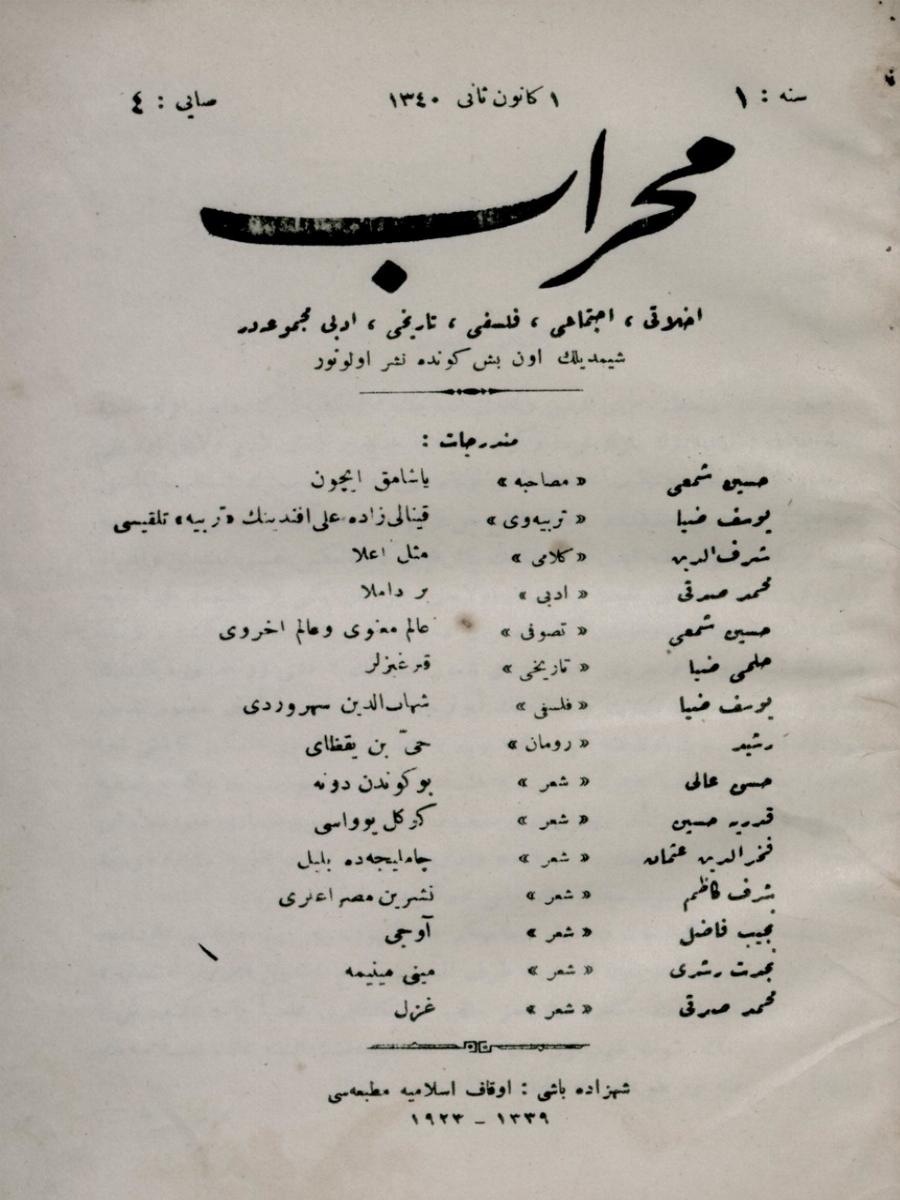 سنه : ١ ١ كانون ثانى ١٣٤٠ صايى : ٤
محراب
اخلاقى ، اجتماعى ، فلسفى ، تاريخى ، ادبى مجموعه‌در
شيمديلك اون بش كونده نشر اولونور
مندرجات :
حسين شمعى « مصاحبه » ياشامق ايچون
يوسف ضيا « تربيه‌وى » قينالى‌زاده على افندينك «تربيه» تلقيسى
شرف‌الدين « كلامى » مثل اعلا
محمد صدقى « ادبى » بر داملا
حسين شمعى « تصوفى » عالم معنوى وعالم اخروى
حلمى ضيا « تاريخى » قيرغيزلر
يوسف ضيا « فلسفى » شهاب‌الدين سهروردى
رشيد « رومان » حىّ بن يقظاى
حسن عالى « شعر » بوكوندن دونه
قدريه حسين « شعر » كركل يوواسى
فخرالدين عثمان « شعر » چامليجه‌ده بلبل
شرف كاظم « شعر » نشرين
نجيب فاضل « شعر » آوجى
نجدت رشدى « شعر » مينى مينيمه
محمد صدقى « شعر » غزل
شهزاده باشى : اوقاف اسلاميه مطبعه‌سى
١٣٣٩ – ١٩٢٣